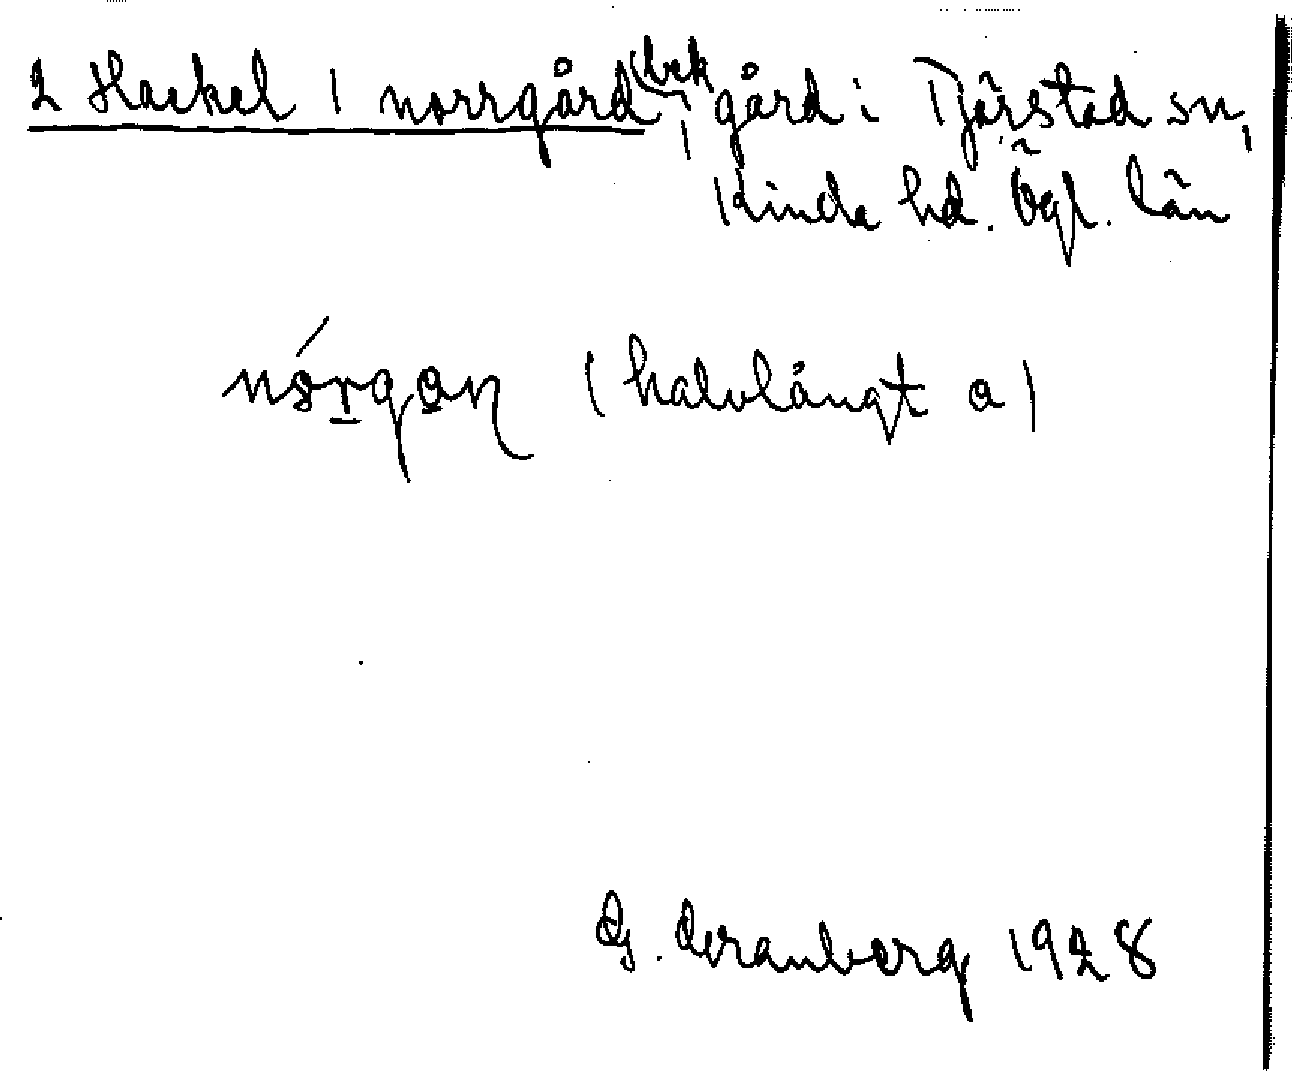 2 Hackel 1 norrgård, (bek gård i Tjärstad sn,
Kinda hd. Ögl. län
nórgan (halvlångt a)
G. Granberg 1928